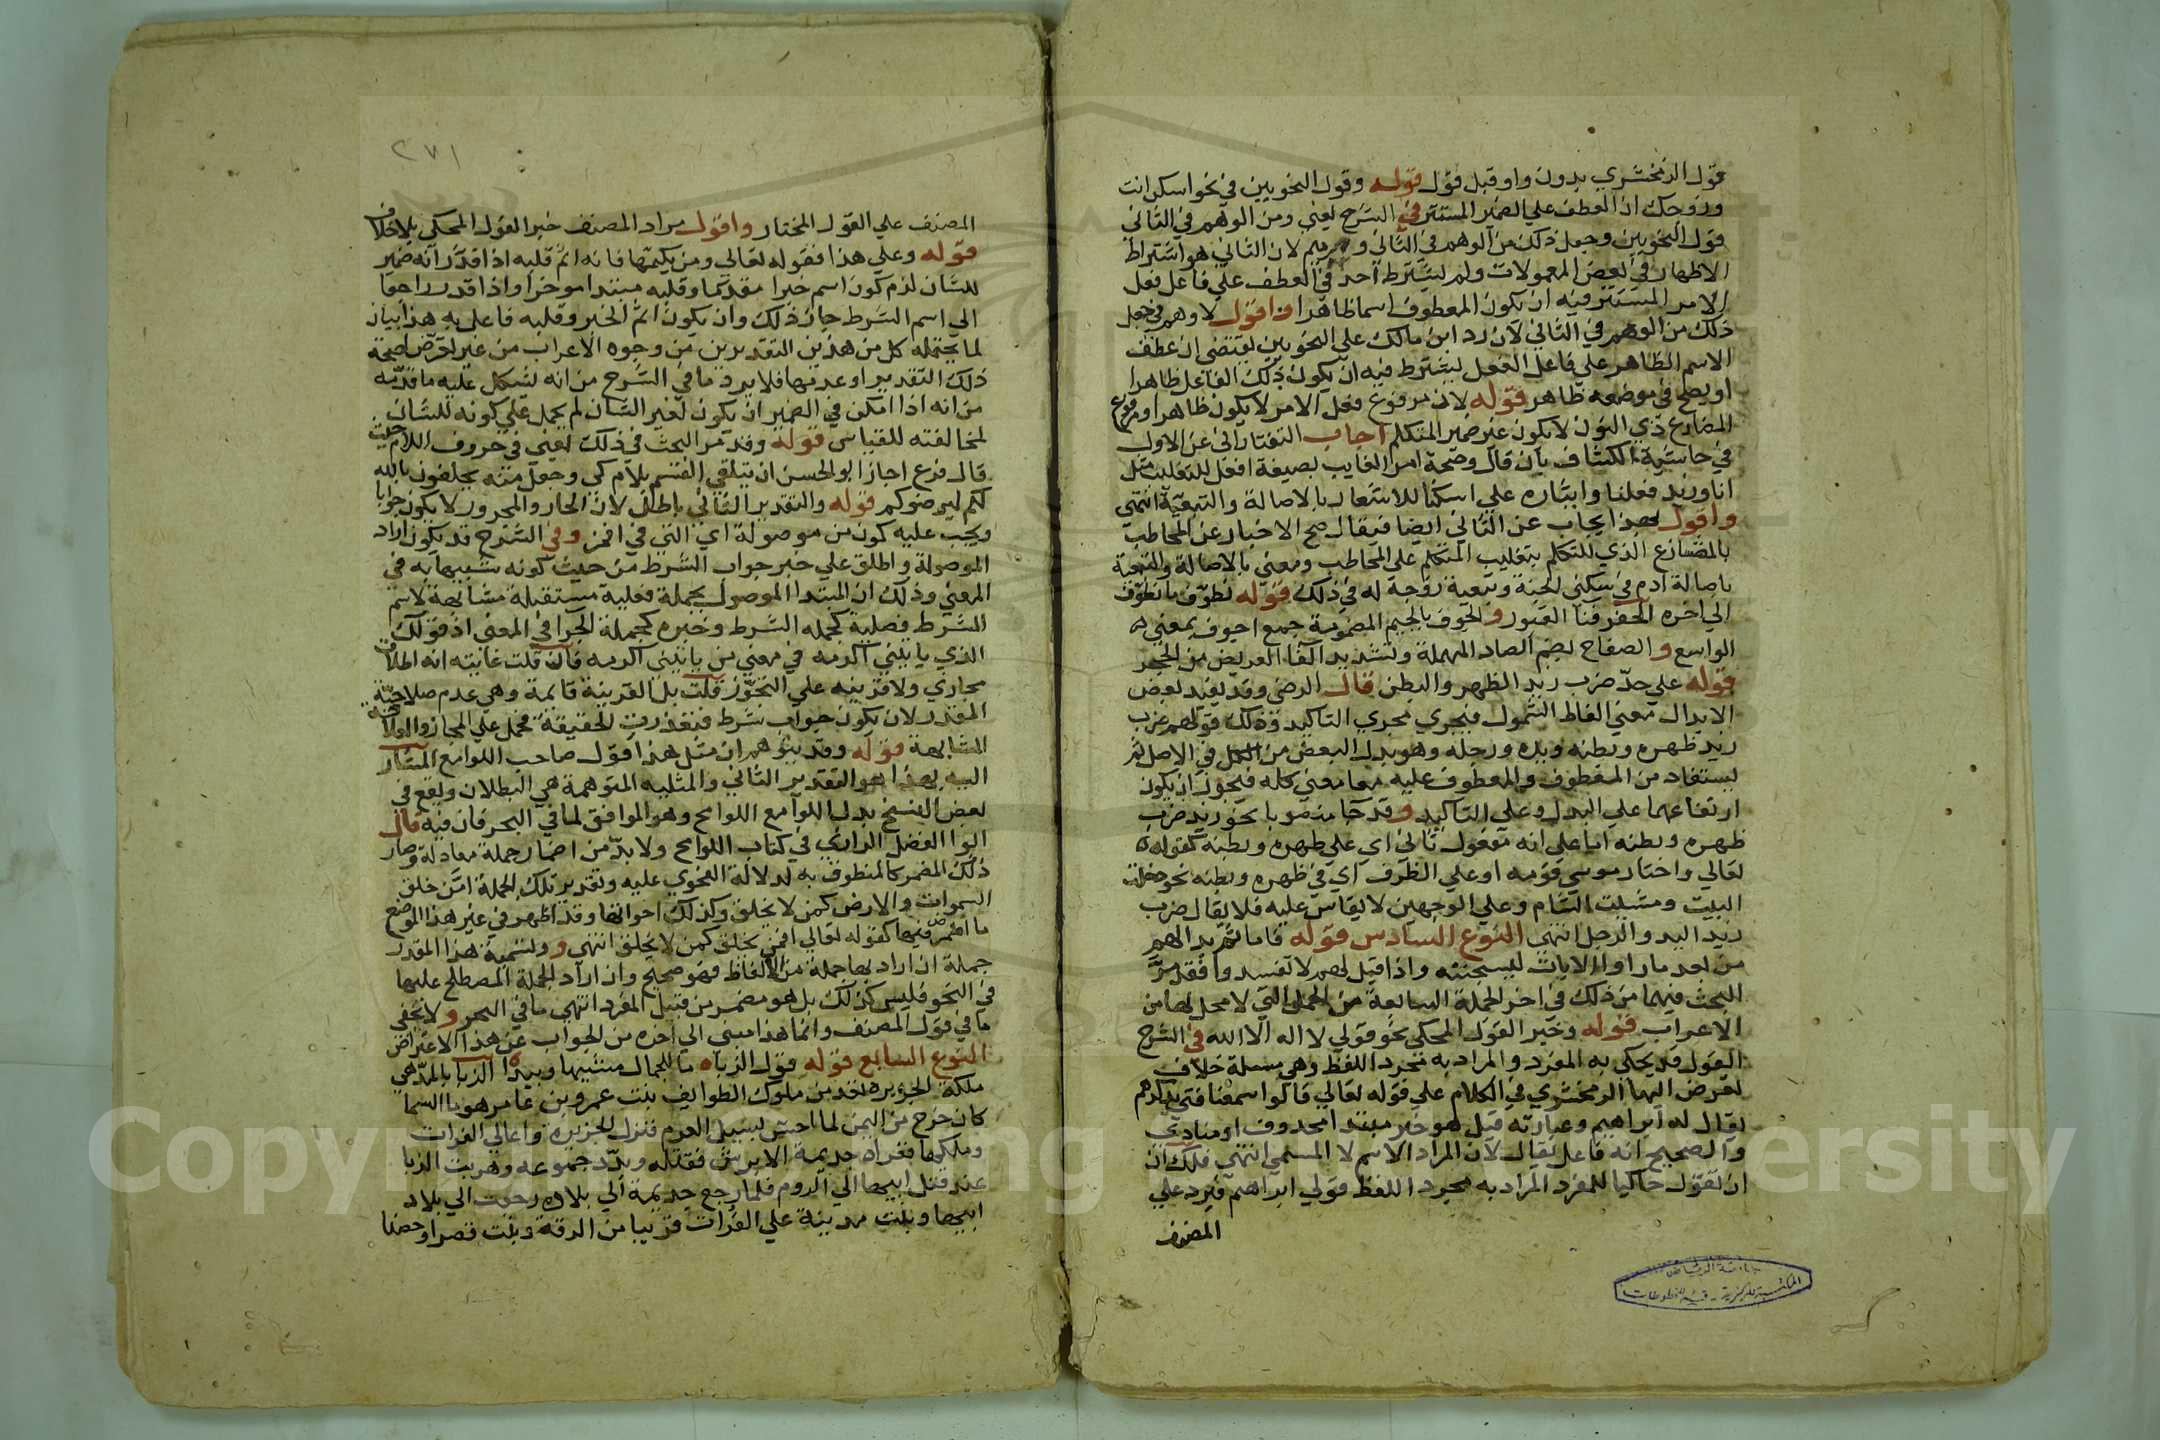 قول الزمخشري بدون واو قبل قول قوله وقول النحويين في نحو اسكن انت
وزوجك ان العطف علي الضمير المستتر في الشرح يعني ومن الوهم في الثاني
قول النحويين وجعل ذلك من الوهم في الثاني لان الثاني هو اشتراط
الاظهار في بعض المعمولات ولم يشترط احد في العطف علي فاعل فعل
الامر المستتر فيه ان يكون المعطوف اسما ظاهرا واقول لا وهم في جعل
ذلك من الوهم في الثاني لان رد ابن مالك علي النحويين يقتضي ان عطف
الاسم الظاهر علي فاعل الفعل يشترط فيه ان يكون ذلك الفاعل ظاهرا
او يصح في موضعه ظاهر قوله لان مرفوع فعل الامر لا يكون ظاهرا ومرفوع
المضارع ذي النون لا يكون غير ضمير المتكلم اجاب التفتازاني عن الاول
في حاشية الكشاف بان قال وصحة امر الغايب بصيغة افعل للتغليب مثل
انا وزيد فعلنا وايثاره علي اسكنا للاشعار بالاصالة والتبعية انتهي
واقول بهذا يجاب عن الثاني ايضا فيقال صح الاخبار عن المخاطب
بالمضارع الذي للتكلم بتغليب المتكلم علي المخاطب ومعني بالاصالة والتبعية
باصالة ادم في سكني الجنة وتبعية زوجة له في ذلك قوله نطوف ما نطوف
الي اخره الحفر هنا القبور و الجوف بالجيم المضمومة جمع اجوف بمعني
الواسع و الصفاح بضم الصاد المهملة وتشديد الفا العريض من الحجر
قوله علي حد ضرب زيد الظهر والبطن قال الرضي وقد يفيد بعض
الابدال معني الفاظ الشمول فيجري مجري التاكيد وذلك قولهم ضرب
زيد ظهره وبطنه ويده ورجله وهو بدل البعض من الكل في الاصل ثم
يستفاد من المعطوف والمعطوف عليه معا معني كله فيجوز ان يكون
ارتفاعهما علي البدل وعلي التاكيد و قد جا منصوبا نحو زيد ضرب
ظهره وبطنه اما علي انه مفعول ثاني اي علي ظهره وبطنه كقوله
تعالي واختار موسي قومه او علي الظرف اي في ظهره وبطنه نحو دخلت
البيت ومشيت الشام وعلي الوجهين لا يقاس عليه فلا يقال ضرب
زيد اليد والرجل انتهي النوع السادس قوله فاما ثم بدا لهم
من بعد ما راوا الايات ليسجننه واذا قيل لهم لا تفسدوا فقد مر
البحث فيهما من ذلك في اخر الجملة السابعة من الجمل التي لا محل لها من
الاعراب قوله وخير القول المحكي نحو قولي لا اله الا الله في الشرح
القول قد يحكي به المفرد والمراد به مجرد اللفظ وهي مسئلة خلاف
تعرض اليها الزمخشري في الكلام علي قوله تعالي قالوا سمعنا فتي يذكرهم
يقال له ابراهيم وعبارته قيل هو خبر مبتدا محذوف او منادي
والصحيح انه فاعل يقال لان المراد الاسم لا المسمي انتهي فلك ان
ان تقول حاكيا للمفرد المراد به مجرد اللفظ قولي ابراهيم فيرد علي
المصنف
جامعة الرياض
المكتبة المركزية - قسم المخطوطات
٢٧١
المصنف علي القول المختار واقول مراد المصنف خير القول المحكي بلا خلاف
قوله وعلي هذا فقوله تعالي ومن يكتمها فانه اثم قلبه اذا قدر انه ضمير
للشان لزم كون اسم خبرا مقدما وقلبه مبتدا موخرا واذا قدر راجعا
الي اسم الشرط جاز ذلك وان يكون اثم الخبر وقلبه فاعل به هذا بيان
لما يحتمله كل من هذين التقديرين من وجوه الاعراب من غير تعرض لصحة
ذلك التقدير او عدمها فلا يرد ما في الشرح من انه يشكل عليه ما قدمه
من انه اذا امكن في الضمير ان يكون لغير الشان لم يحمل علي كونه للشان
لمخالفته للقياس قوله وقد مر البحث في ذلك يعني في حروف اللام حيث
قال فرع اجاز ابو الحسن ان يتلقي القسم بلام كي وجعل منه يحلفون بالله
لكم ليرضوكم قوله والتقدير الثاني باطل لان الجار والمجرور لا يكون جوابا
ويجب عليه كون من موصولة اي التي في افمن وفي الشرح قد يكون اراد
الموصولة واطلق علي خبر جواب الشرط من حيث كونه شبيها به في
المعني وذلك ان المبتدا الموصول بجملة فعلية مستقبلة مشابهة لاسم
الشرط فصلية كجمله الشرط وخبره كجملة الجزا في المعني اذ قولك
الذي ياتيني اكرمه في معني من ياتيني اكرمه فان قلت غايته انه اطلاق
مجازي ولا قرينه علي التجوز قلت بل القرينة قايمة وهي عدم صلاحية
المقدر لان يكون جواب شرط فتعذرت الحقيقة فحمل علي المجاز والعلاقة
المشابهة قوله وقد يتوهم ان مثل هذا قول صاحب اللوامع المشار
اليه بهذا هو التقدير الثاني والمثليه المتوهمة هي البطلان ويقع في
بعض النسخ بدل اللوامع اللوامح وهو الموافق لما في البحر فان فيه قال
ابوا الفضل الرازي في كتاب اللوامح ولا بد من اضمار جملة معادلة وصار
ذلك المضمر كالمنطوق به لدلالة الفحوي عليه وتقدير تلك الجملة امن خلق
السموات والارض كمن لا يخلق وكذلك اخواتها وقد اظهر في غير هذا الموضع
ما اضمر فيها كقوله تعالي افمن يخلق كمن لا يخلق انتهي و وتسمية هذا المقدر
جملة ان اراد بها جملة من الالفاظ فهو صحيح وان اراد الجملة المصطلح عليها
في النحو فليس كذلك بل هو مضمر من قبيل المفرد انتهي ما في البحر و لا يخفي
ما في قول المصنف وانما هذا مبني الي اخره من الجواب عن هذا الاعتراض
النوع السابع قوله قول الزباه ما للجمال مشيها وييدا الزبا بالمد هي
ملكة الجزيره تعد من ملوك الطوايف بنت عمرو بن عامر هو ما السما
كان خرج من اليمن لما احس بسيل العرم فنزل الجزيرة واعالي الفرات
وملكها فغزاه جذيمة الابرش فقتله وبدد جموعه وهربت الزبا
عند قتل ابيها الي الروم فلما رجع جذيمة الي بلاده رجعت الي بلاد
ابيها وبنت مدينة علي الفرات قريبا من الرقة وبنت قصرا وحصنا